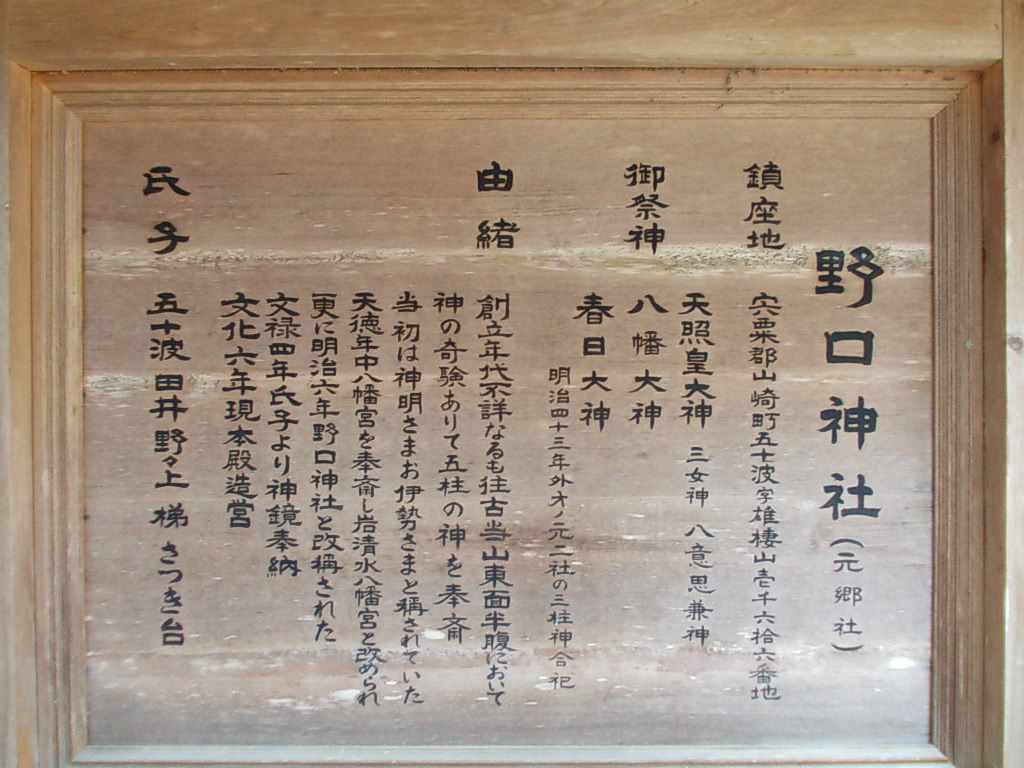 野口神社(元郷社)
鎮座地 宍粟郡山崎町五十波字雄棲山壱千六拾六番地
御祭神 天照皇大神 三女神 八意思兼神
八幡大神
春日大神
明治四十三年外オノ元二社の三柱神合祀
由緒 創立年代不詳なるも往古当山東面半腹において
神の奇験ありて五柱の神を奉斎
当初は神明さまお伊勢さまと稱されていた
天徳年中八幡宮を奉斎し岩清水八幡宮と改められ
更に明治六年野口神社と改稱された
文禄四年氏子より神鏡奉納
文化六年現本殿造営
氏子 五十波 田井 野々上 梯 さつき台